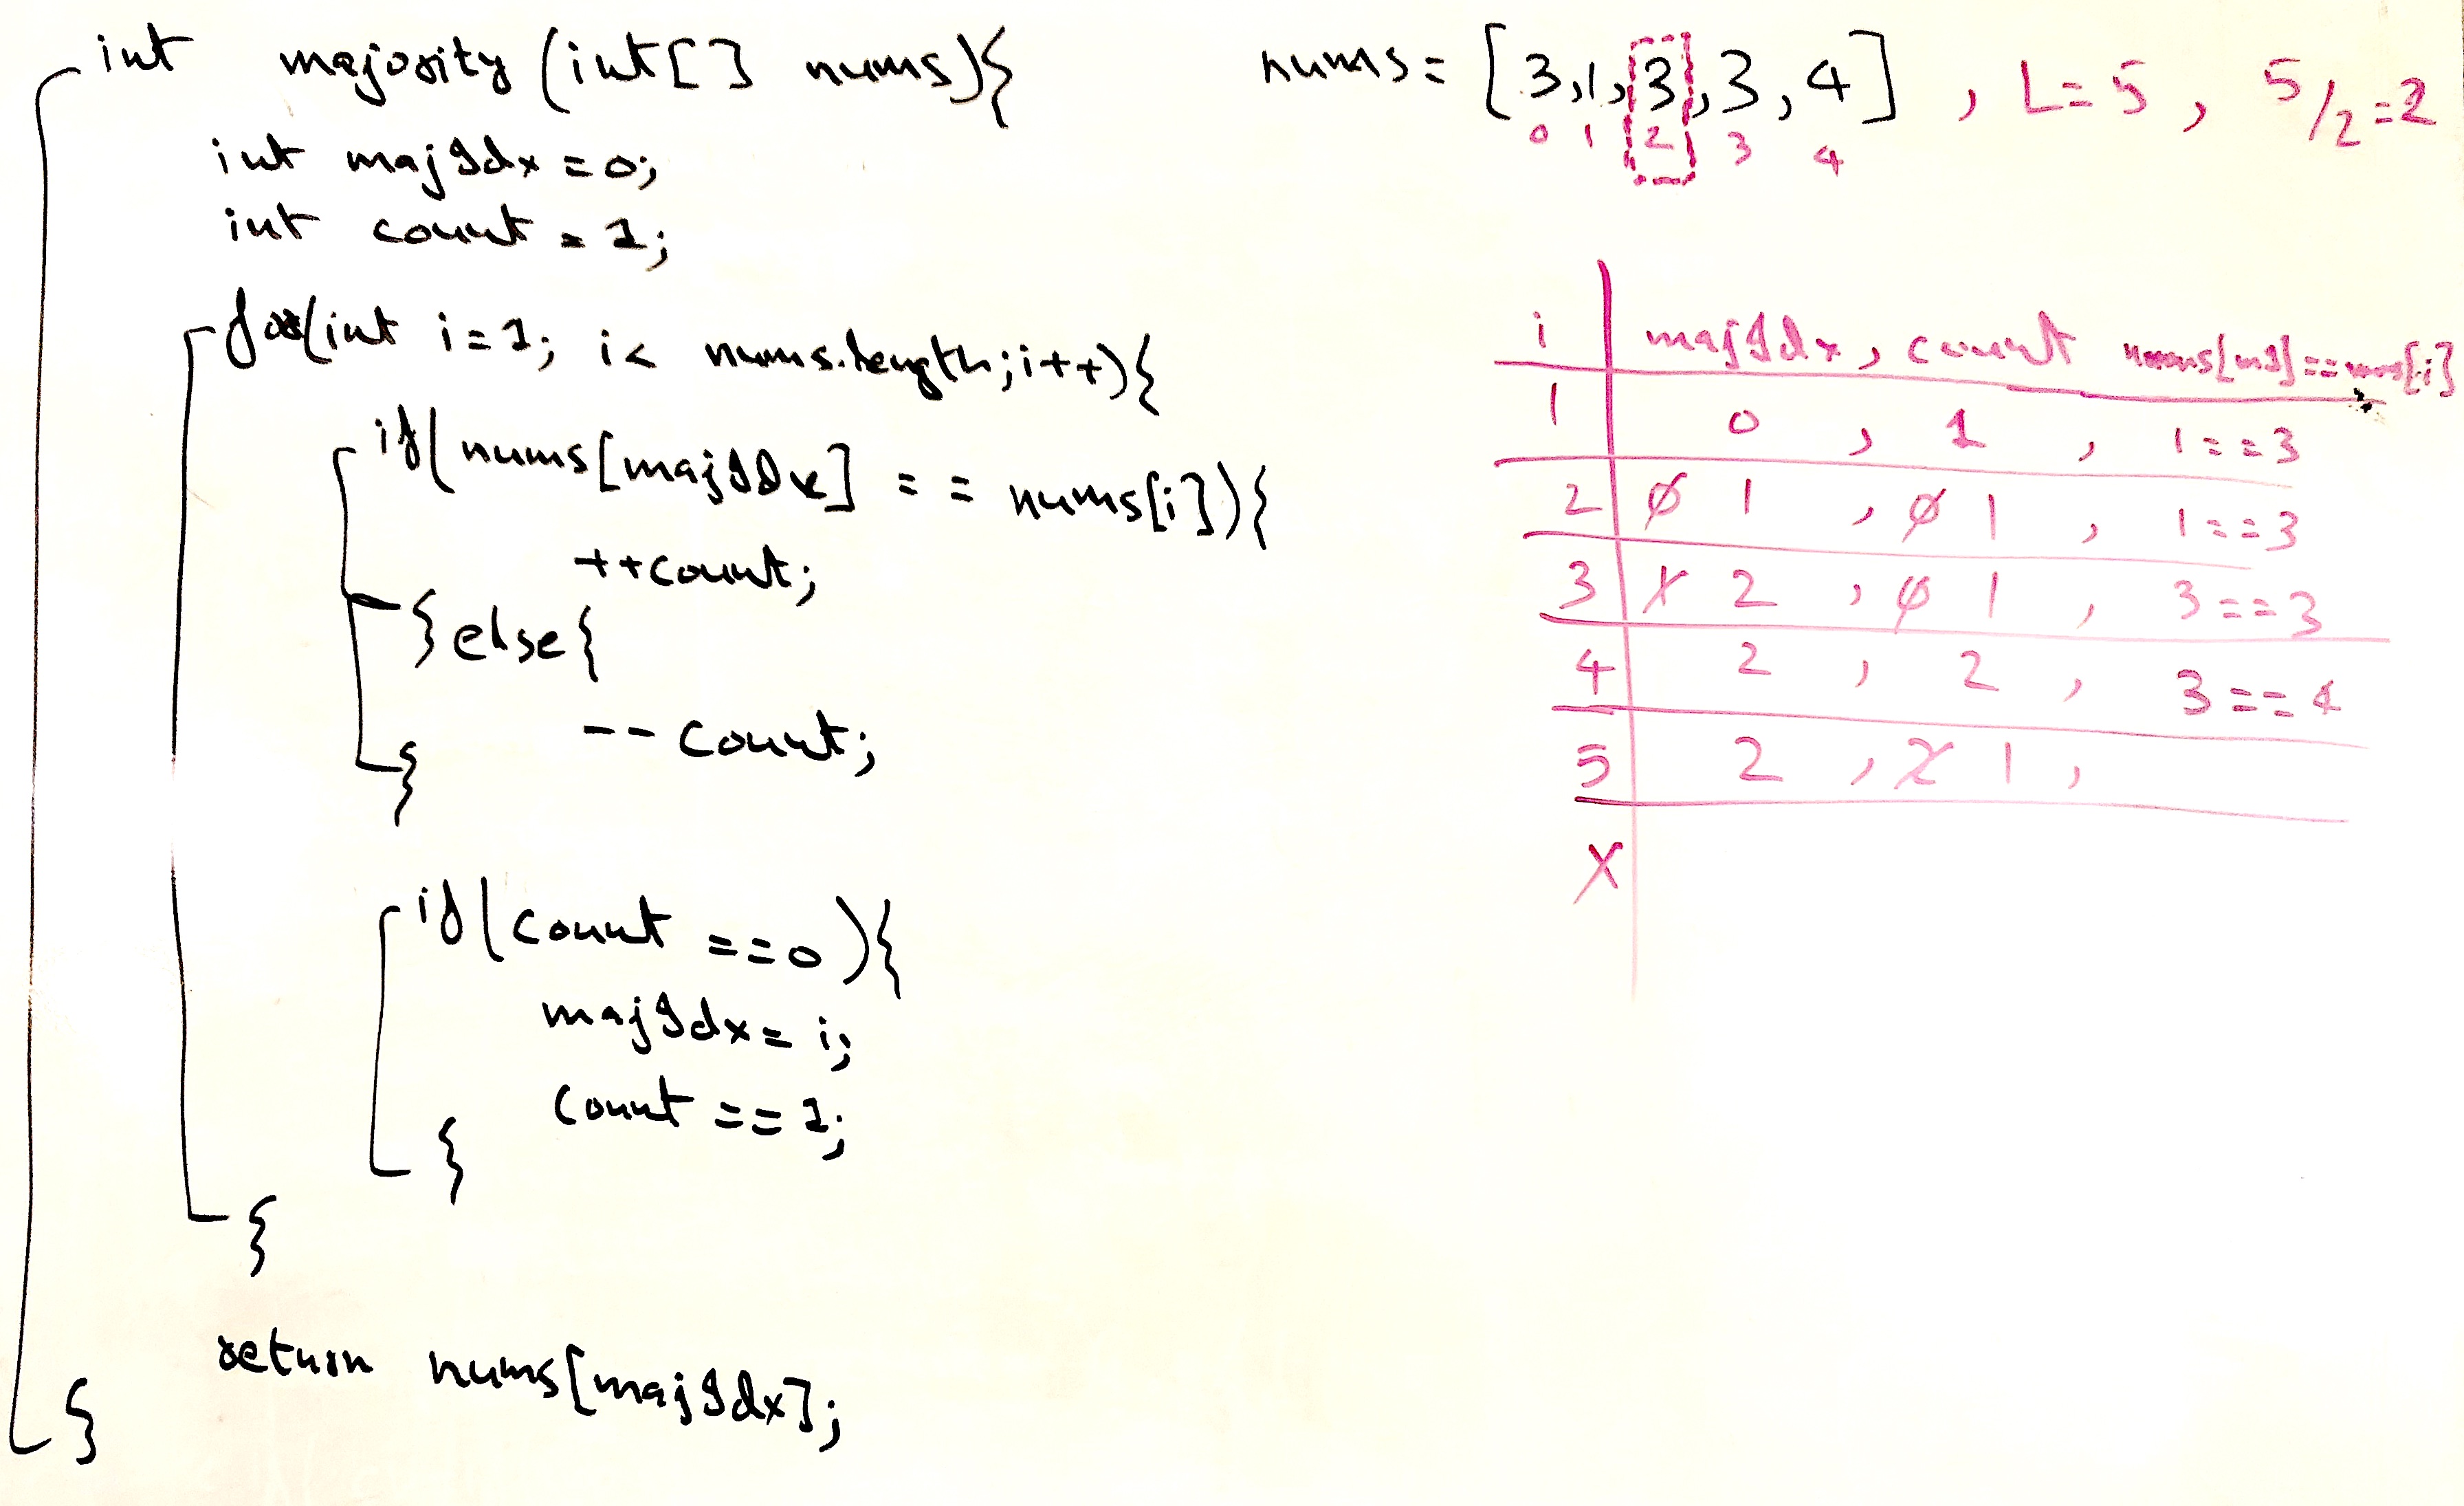 int majority (int[] nums){
int majIdx = 0;
int count = 1;
for(int i=1; i< nums.length; i++){
if(nums[majIdx] == nums[i]){
++count;
}else{
-- count;
}
if(count ==0){
majIdx = i;
count == 1;
}
}
return nums[majIdx];
}
nums = [3,1,3,3,4] , L=5 , 5/2=2
0 1 2 3 4
i majIdx, count nums[mI]==nums[i]
1 0 , 1 , 1==3
2 0 1 , 0 1 , 1==3
3 1 2 , 0 1 , 3==3
4 2 , 2 , 3==4
5 2 , 2 1 ,
X